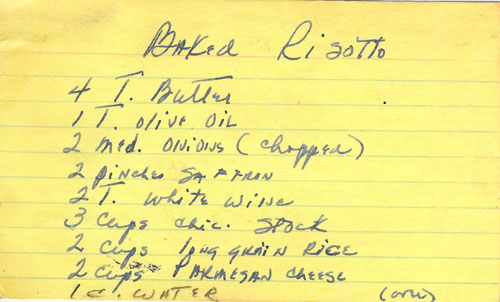 Baked Risotto
4 T. Butter
1 T. olive oil
2 med. onions (chopped)
2 pinches saffron
2 T. white wine
3 cups chic. stock
2 cups long grain rice
2 cups Parmesan cheese
1 c. water (over)